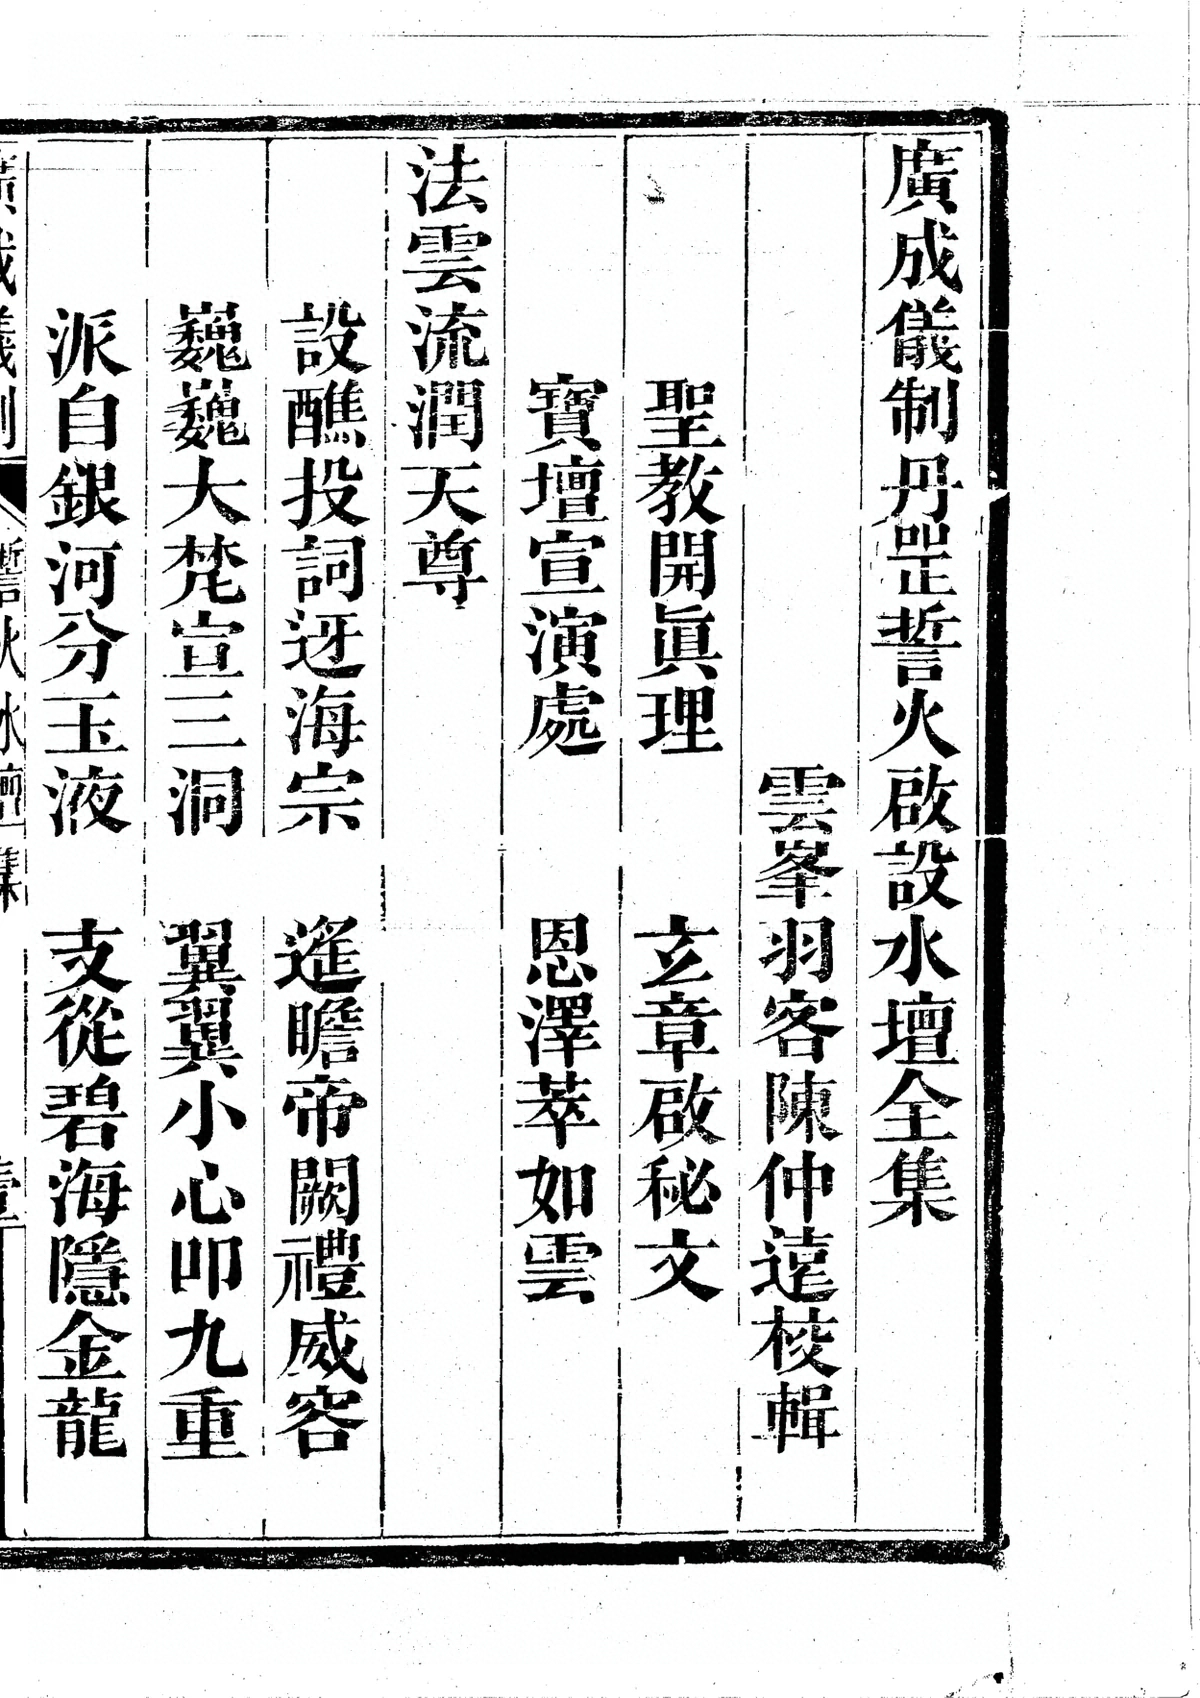 廣成儀制丹罡誓火啟設水壇全集
雲峯羽客陳仲遠校輯
聖教開眞理　玄章啟秘文
寶壇宣演處　恩澤萃如雲
法雲流潤天尊
設醮投詞迓海宗　遙瞻帝闕禮威容
巍巍大梵宣三洞　翼翼小心叩九重
派自銀河分玉液　支從碧海隱金龍
廣成儀制　誓火水壇集　壹